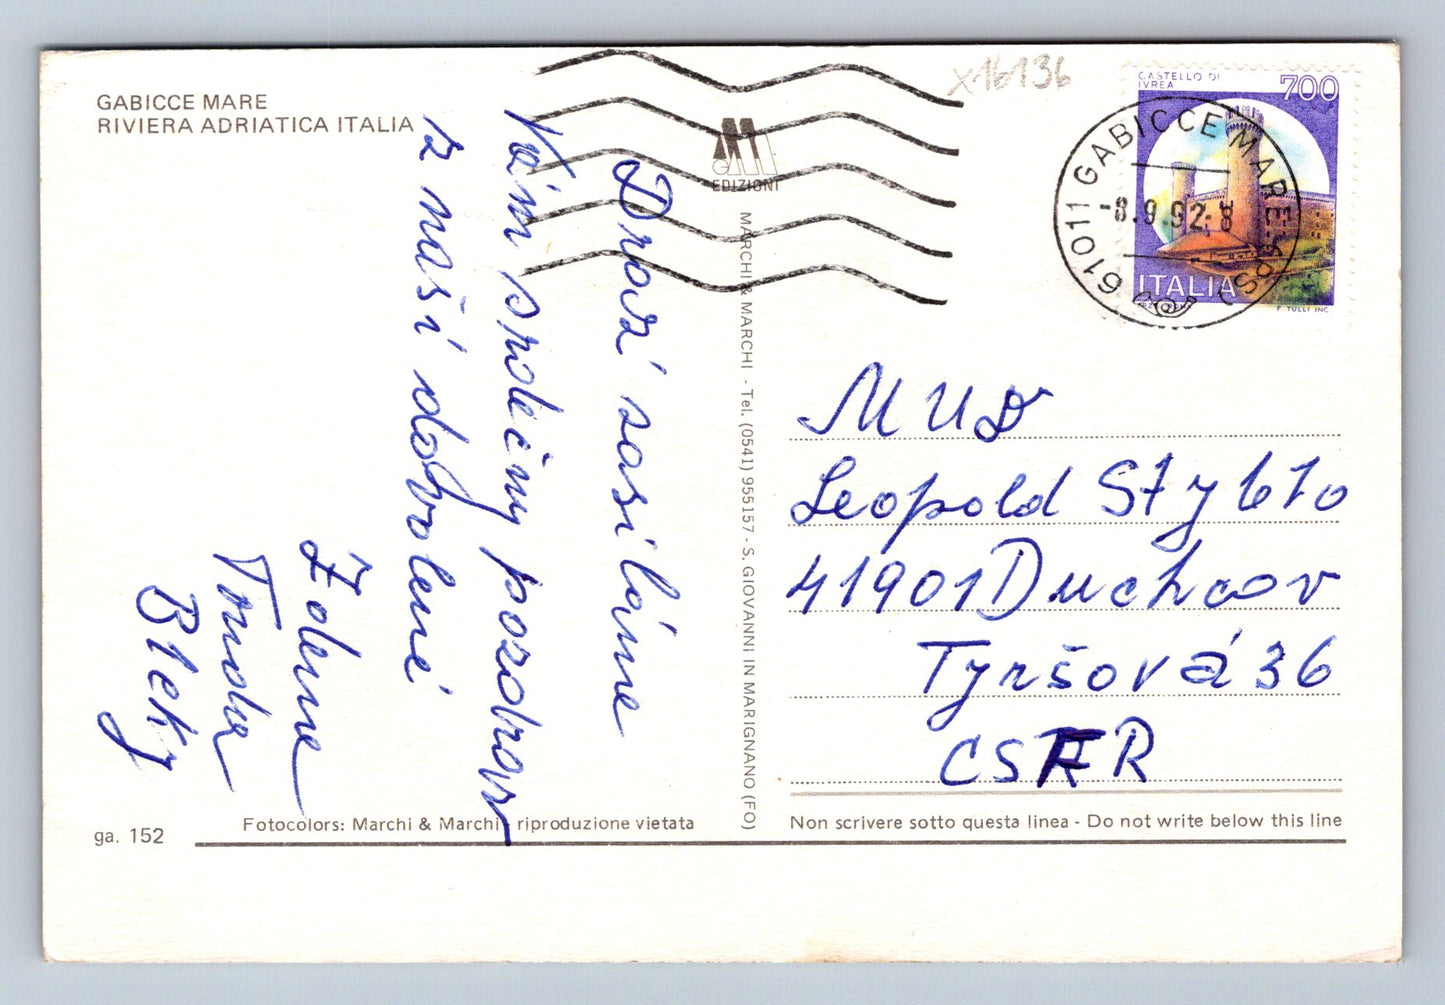 GABICCE MARE
RIVIERA ADRIATICA ITALIA
x16136
CASTELLO DI
IVREA
700
ITALIA
F. TULLI INC.
61011 GABICCE MARE (PS)
-8.9.92-8
EDIZIONI
MARCHI & MARCHI - Tel. (0541) 955157 - S. GIOVANNI IN MARIGNANO (FO)
Drazí zasíláme
Vám společný pozdrav
z naší dovolené
Zdena
Tonda
Bleky
MUDr
Leopold Styblo
41901 Duchcov
Tyršová 36
CSFR
ga. 152
Fotocolors: Marchi & Marchi - riproduzione vietata
Non scrivere sotto questa linea - Do not write below this line